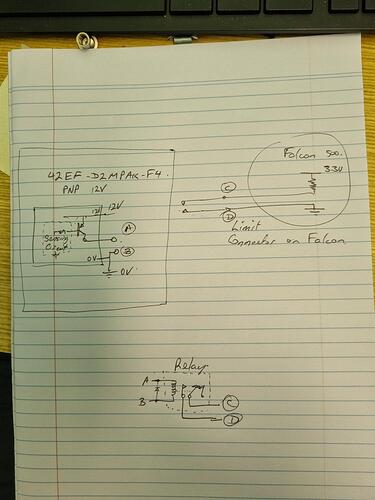 42EF-D2MPAK-F4.
PNP 12V
12V 12V
A
Sensing
Circuit
B
0V
0V
Falcon 500.
3.3V
C
D
Limit
Connector on Falcon
Relay
A
B
C
D